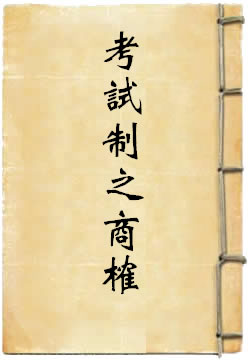 考試制之商榷